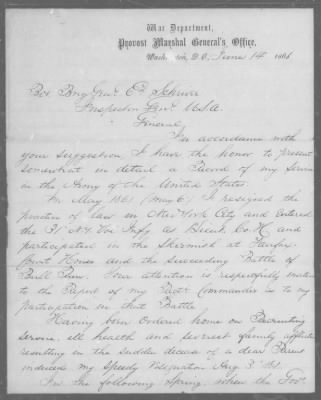 War Department,
Provost Marshal General's Office,
Washington, D.C., June 14 1866
Bvt Brig Genl. Ed Schriver
Inspector Genl. U.S.A.
General,
In accordance with
your suggestion, I have the honor to present
somewhat in detail a Record of my Service
in the Army of the United States.
In May 1861 (May 6) I resigned the
practice of law in New York City and entered
the 31 N.Y. Vol Infy as Lieut. Co. H, and
participated in the Skirmish at Fairfax
Court House and the succeeding Battle of
Bull Run. Your attention is respectfully invited
to the Report of my Regt. Commander as to my
participation in that Battle.
Having been ordered home on Recruiting
Service, ill health and severest family affliction
resulting in the sudden decease of a dear Parent
induced my speedy resignation Aug. 3d 61.
In the following Spring, when the Gov.